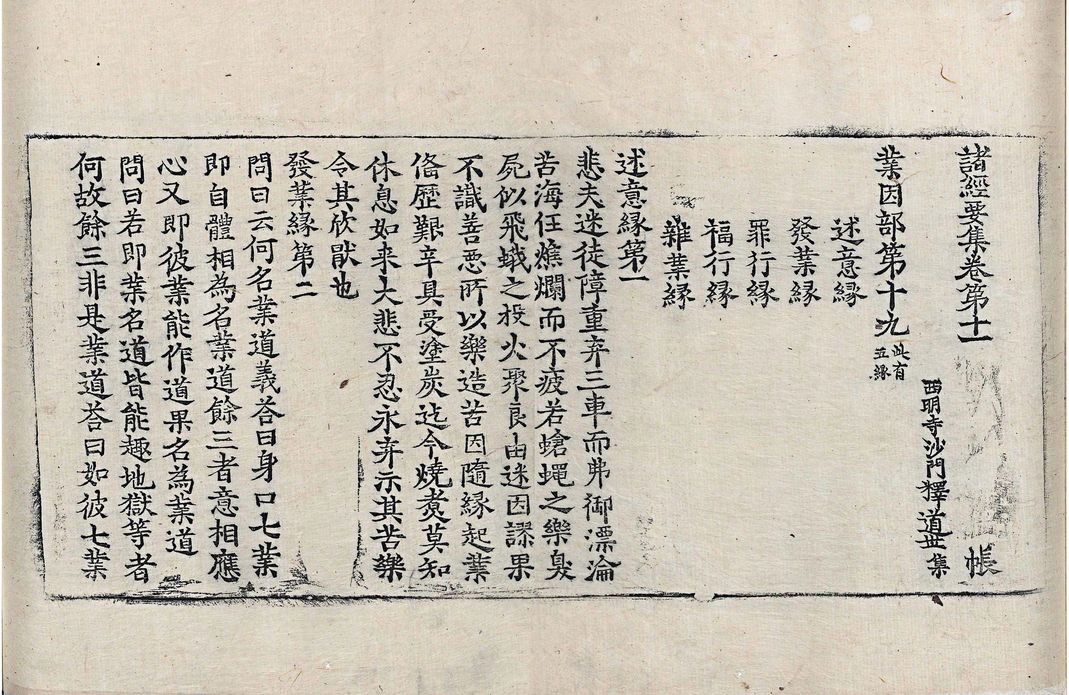 諸經要集卷第十一 帳
西明寺沙門釋道世集
業因部第十九 此有五緣
述意緣
發業緣
罪行緣
福行緣
雜業緣
述意緣第一
悲夫迷徒障重弃三車而弗御漂淪
苦海任燋爛而不疲若蒼蠅之樂臭
屍似飛蛾之投火聚良由迷因謬果
不識善惡所以樂造苦因隨緣起業
俻歷艱辛具受塗炭迄今燒煑莫知
休息如来大悲不忍永弃示其苦樂
令其欣猒也
發業緣第二
問曰云何名業道義荅曰身口七業
即自體相為名業道餘三者意相應
心又即彼業能作道果名為業道
問曰若即業名道皆能趣地獄等者
何故餘三非是業道荅曰如彼七業